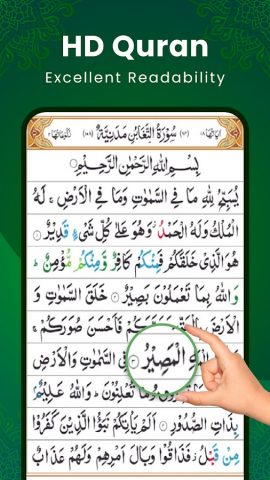 HD Quran
Excellent Readability
سُوْرَةُ التَّغَابُنِ مَدَنِيَّةٌ
بِسْمِ اللّٰهِ الرَّحْمٰنِ الرَّحِيْمِ
يُسَبِّحُ لِلّٰهِ مَا فِى السَّمٰوٰتِ وَمَا فِى الْاَرْضِ ۚ لَهُ
الْمُلْكُ وَلَهُ الْحَمْدُ ۚ وَهُوَ عَلٰى كُلِّ شَىْءٍ قَدِيْرٌ
هُوَ الَّذِىْ خَلَقَكُمْ فَمِنْكُمْ كَافِرٌ وَّمِنْكُمْ مُّؤْمِنٌ ؕ
وَاللّٰهُ بِمَا تَعْمَلُوْنَ بَصِيْرٌ خَلَقَ السَّمٰوٰتِ وَ
الْاَرْضَ فَاَحْسَنَ صُوَرَكُمْ ۚ
الْمَصِيْرُ فِى السَّمٰوٰتِ وَالْاَرْضِ
تُعْلِنُوْنَ ؕ وَاللّٰهُ عَلِيْمٌۢ
بِذَاتِ الصُّدُوْرِ اَلَمْ يَاْتِكُمْ نَبَؤُا الَّذِيْنَ كَفَرُوْا
مِنْ قَبْلُ ؗ فَذَاقُوْا وَبَالَ اَمْرِهِمْ وَلَهُمْ عَذَابٌ